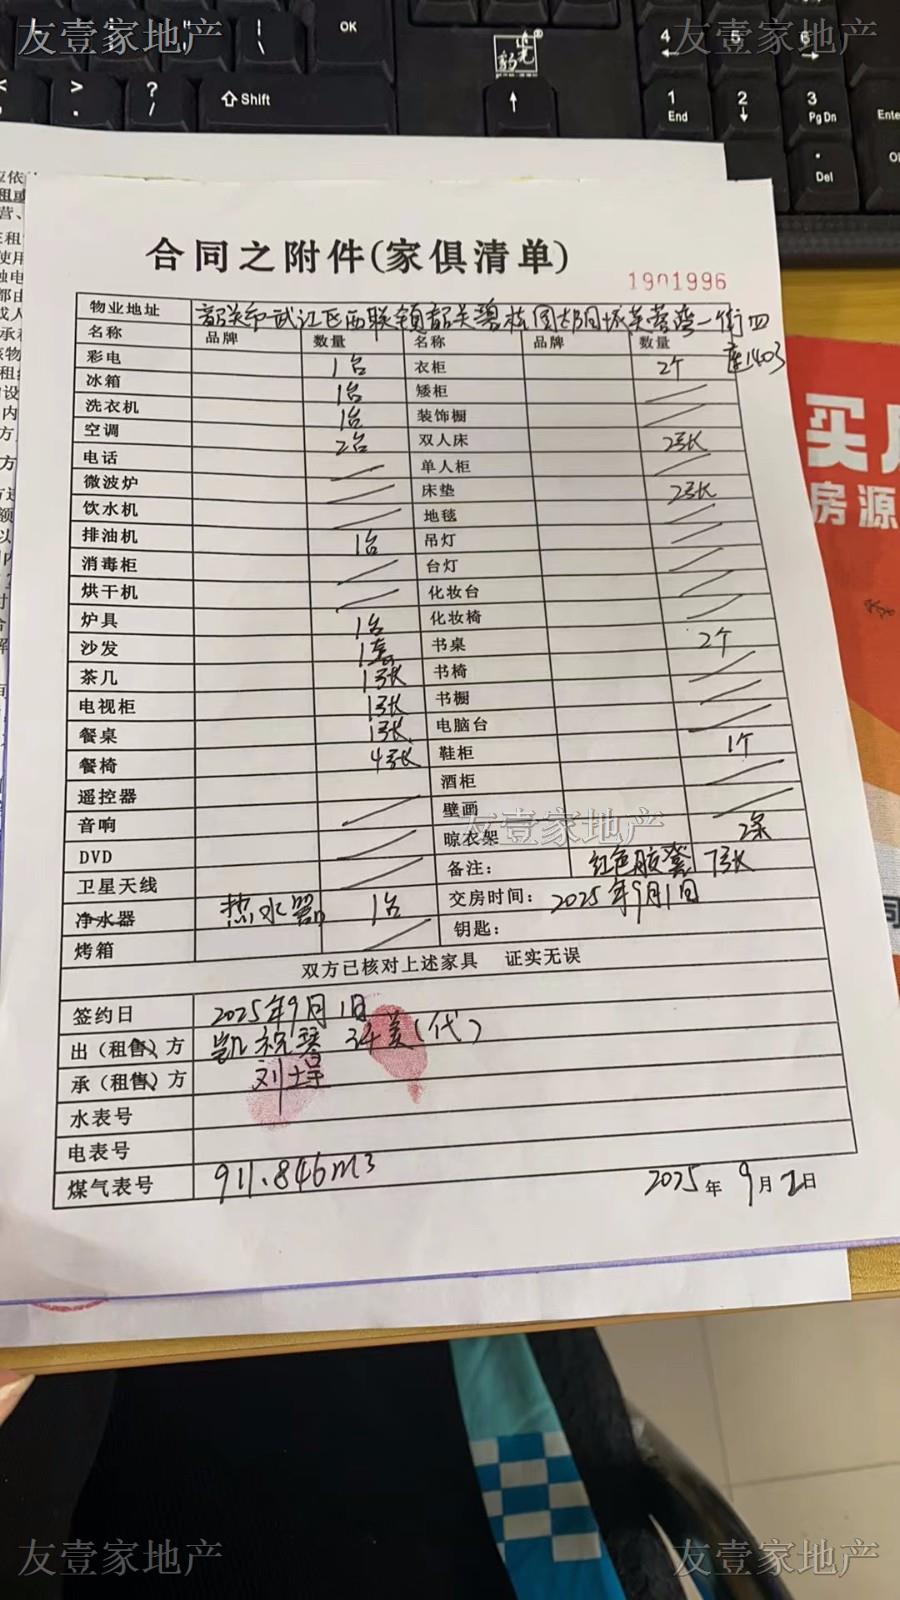 友壹家地产
友壹家地产
OK
4
5
6
?
/
Shift
1
End
2
3
Pg Dn
Ente
Del
合同之附件(家俱清单)
1901996
物业地址 韶关市武江区西联镇韶关碧桂园太阳城芙蓉湾一街四
座1403
名称 品牌 数量 名称 品牌 数量
彩电 1台 衣柜 2个
冰箱 1台 矮柜
洗衣机 1台 装饰橱
空调 2台 双人床 2张
电话 单人柜
微波炉 床垫 2张
饮水机 地毯
排油机 1台 吊灯
消毒柜 台灯
烘干机 化妆台
炉具 1台 化妆椅
沙发 1套 书桌 2个
茶几 1张 书椅
电视柜 1张 书橱
餐桌 1张 电脑台
餐椅 4张 鞋柜 1个
遥控器 酒柜
音响 壁画
DVD 晾衣架 2条
卫星天线 备注: 红色胶凳 7张
净水器 热水器 1台 交房时间: 2025年9月1日
烤箱 钥匙:
双方已核对上述家具 证实无误
签约日 2025年9月1日
出(租售)方 (代)
承(租售)方
水表号
电表号
煤气表号 911.846m3
2025年9月2日
买
房源
友壹家地产
友壹家地产
友壹家地产